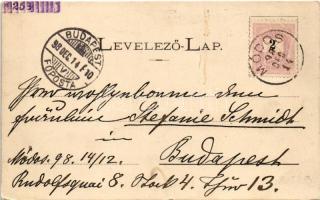 1253
BUDAPEST
98 DEC. 14 F 10
FŐPOSTA
MÓDOS
LEVELEZŐ-LAP.
Stefanie Schmidt
in
Módos 98. 14/12. Budapest
Rudolfsquai 8. Stock 4. Thür 13.